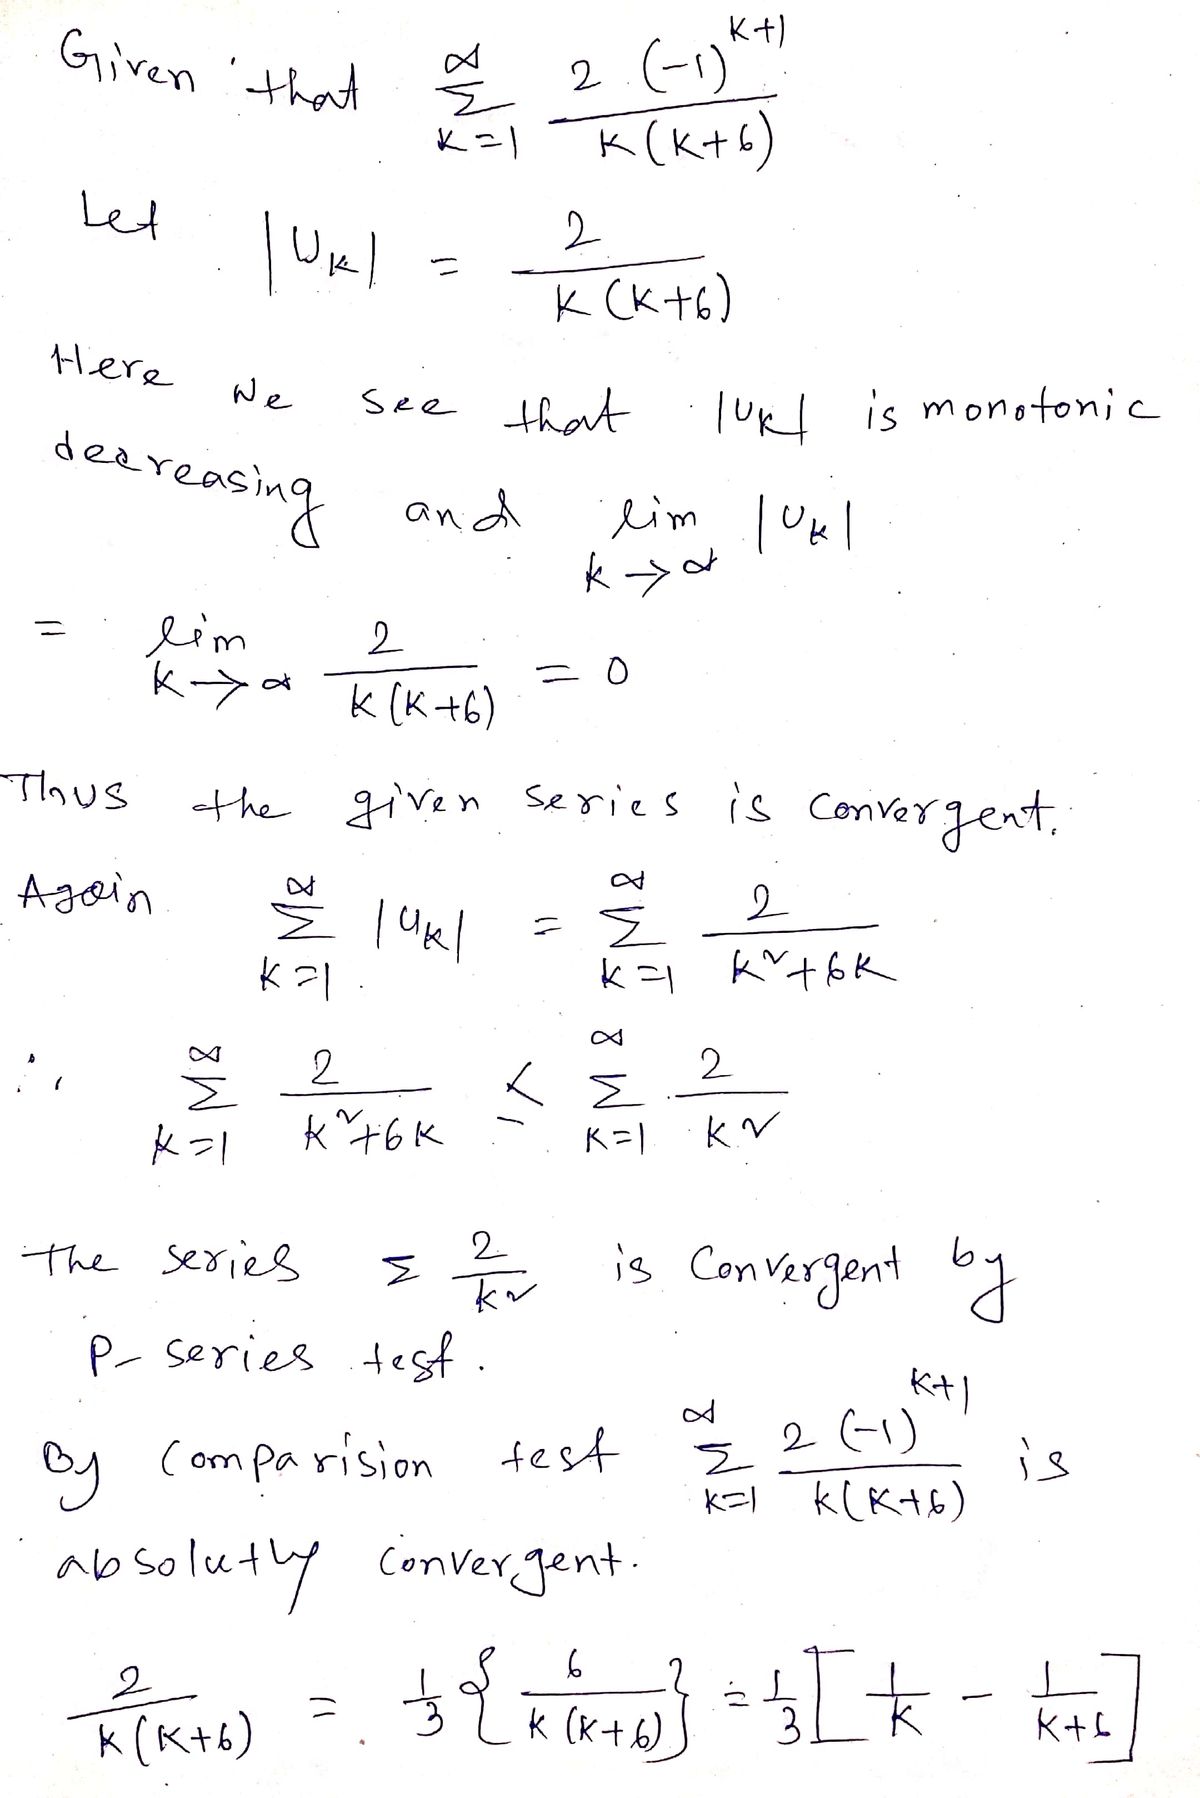 Given that ∞Σk=1 2 (-1)^(k+1) / k(k+6)
Let |Uk| = 2 / k(k+6)
Here we see that |Uk| is monotonic
decreasing and lim k→∞ |Uk|
= lim k→∞ 2 / k(k+6) = 0
Thus the given series is convergent.
Again ∞Σk=1 |Uk| = ∞Σk=1 2 / k²+6k
∴ ∞Σk=1 2 / k²+6k ≤ ∞Σk=1 2 / k²
The series Σ 2 / k² is Convergent by
P- series test.
By Comparision test ∞Σk=1 2 (-1)^(k+1) / k(k+6) is
absolutly convergent.
2 / k(k+6) = 1/3 { 6 / k(k+6) } = 1/3 [ 1/k - 1/k+6 ]